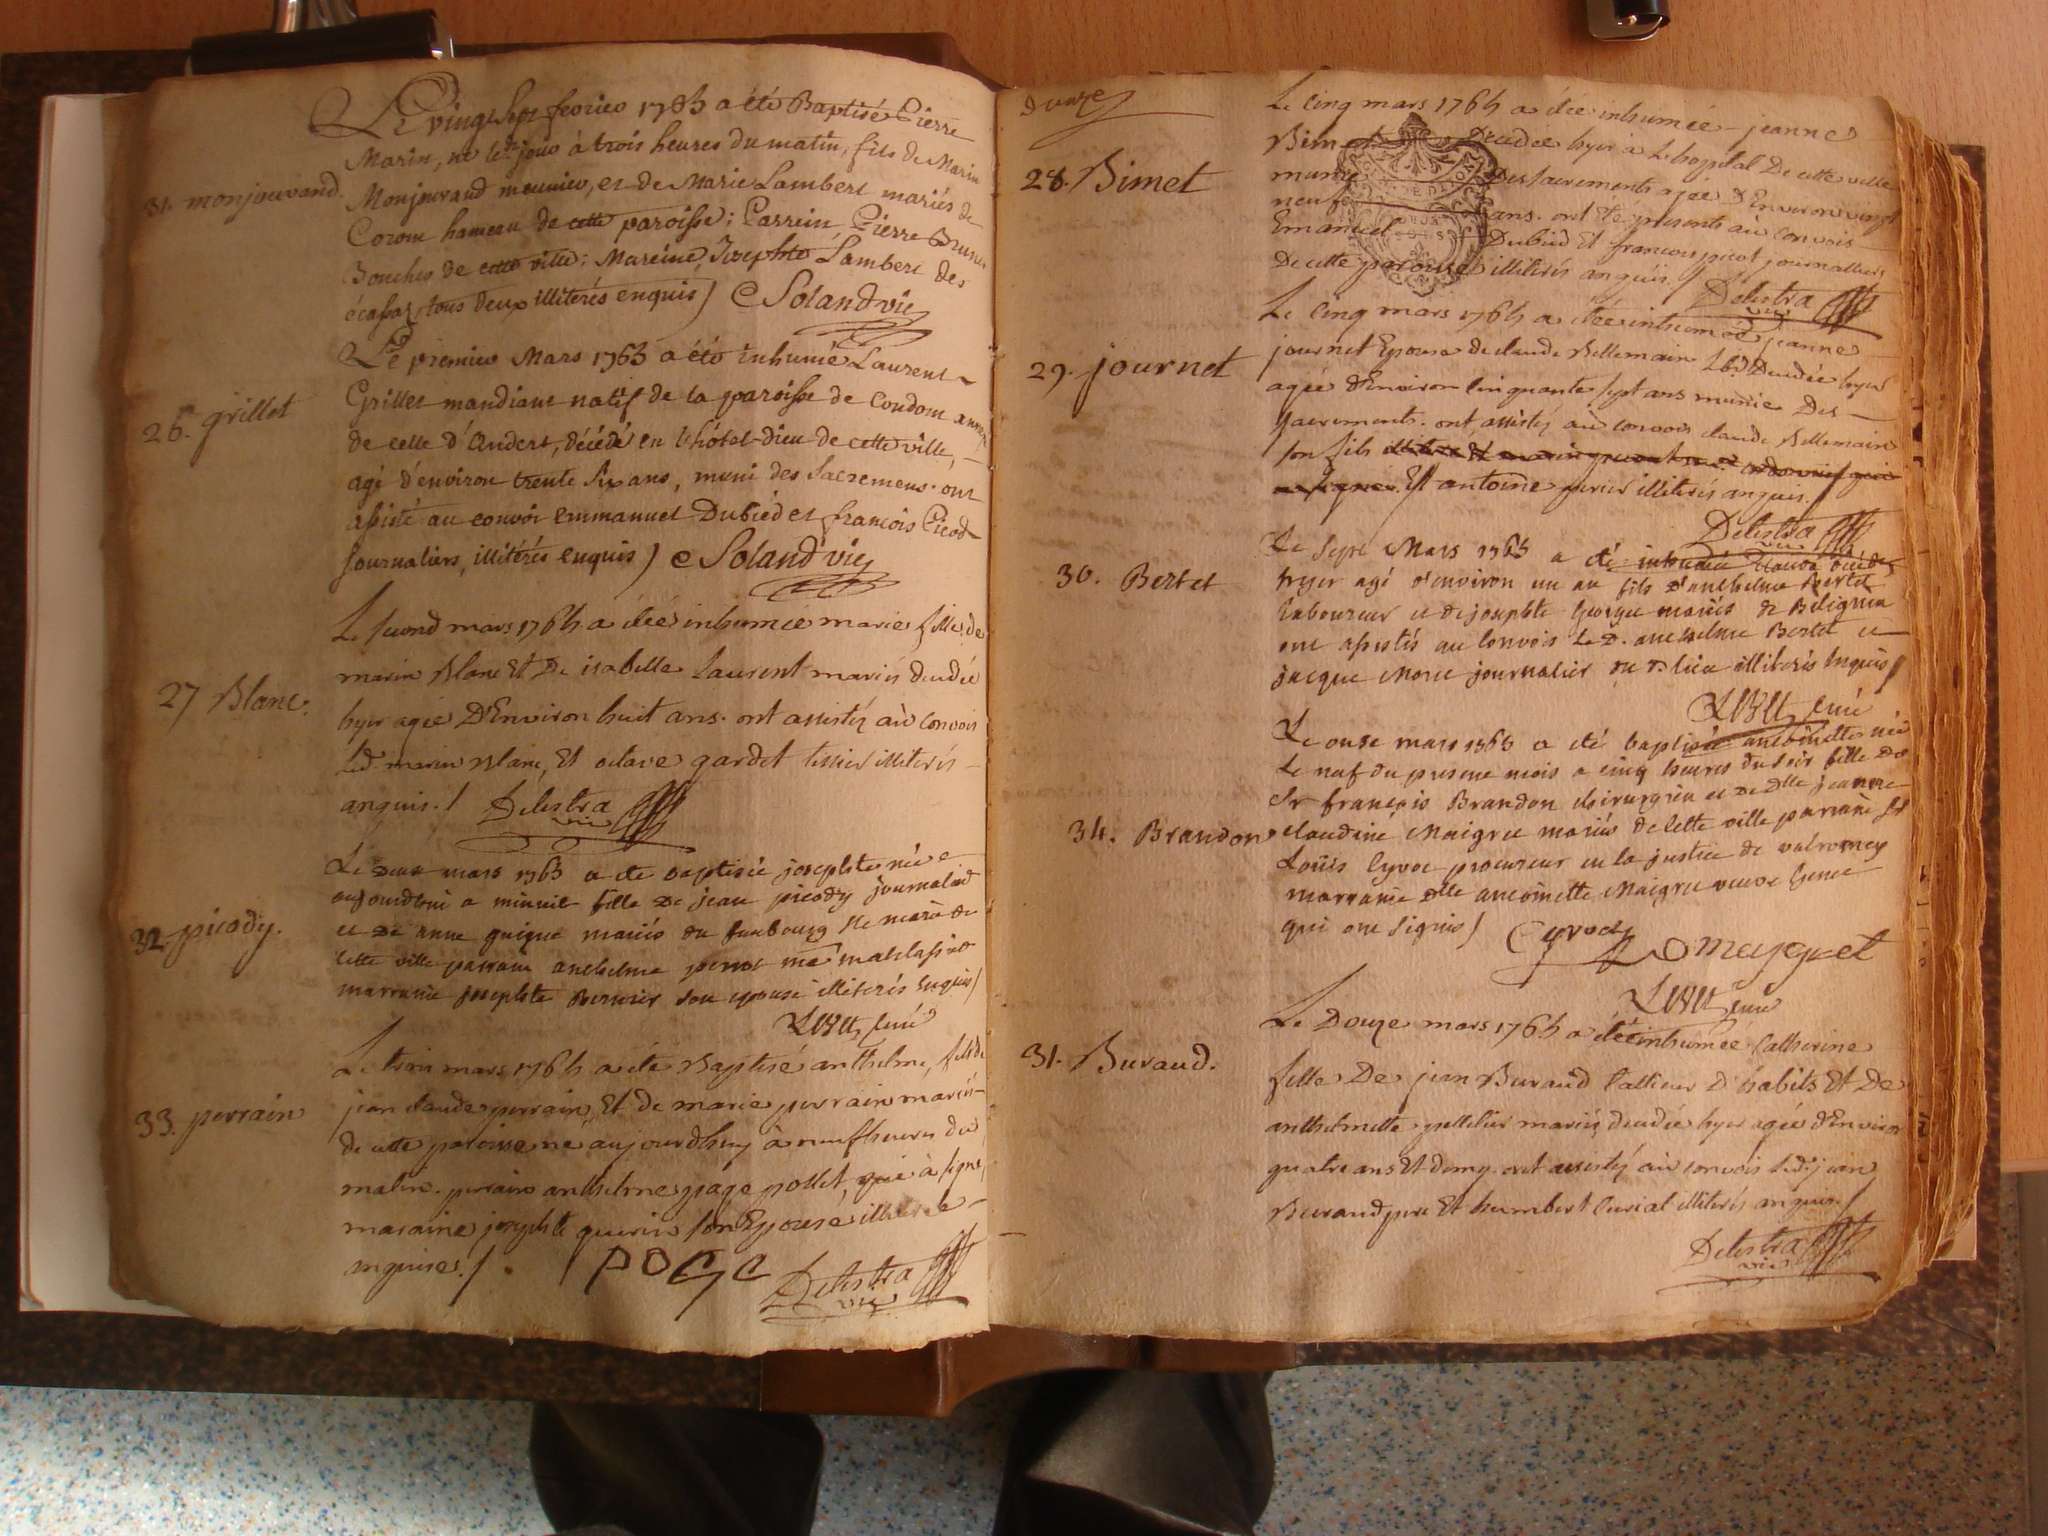 Le vingt sept fevrier 1765 a été Baptisé Pierre
Marin, né led. jour à trois heures du matin, fils de Marin
31. monjouvand.
Monjouvand meunier, et de Marie Lambert mariés de
Coron hameau de cette paroisse; Parrein Pierre Brunet
Boucher de cette ville; Mareine, Josephte Lambert des
écassaz, tous deux illiterés enquis / Soland vic
Le premier Mars 1765 a été inhumé Laurent
26. grillet
Grillet mandiant natif de la paroisse de Condom annexe
de celle d'Andert, décédé en l'hôtel-Dieu de cette ville,
agé d'environ trente six ans, muni des Sacremens. ont
assisté au convoi emmanuel Dubied et françois Picod
journaliers, illitérés enquis / Soland vic
Le second mars 1765 a étéé inhumée marie fille de
27 Blanc.
marin Blanc Et De isabelle laurent mariés decedée
hyer agée D'Environ huit ans. ont assistéz aù convois
led. marin Blanc, Et octave gardet tessier illiterés
anquis. / Delestra
vic
Le deux mars 1765 a ete baptisée josephte née
aujourdhui a minuit fille de jean picody journalier
32. picody.
et de anne guigue mariés du fauxbourg
cette ville parrain anthelme
marraine josephte son epouse illiterés enquis /
curé
Le trois mars 1765 a été Baptisé anthelme, fils de
33. perrain
jean claude perrain, Et de marie perrain mariés
de cette paroisse né aujourdhuy à neuf heures du
matin. parrain anthelme page pollet, qui à signé,
maraine josephte guerin son Epouse illiterée
anquise. / . PAGE Delestra
vic
douze
Le Cinq mars 1765 a étée inhumée jeanne
28. Bimet
Bimet Decedée hyer à L'hopital De cette ville
munie Des sacrements agée D'Environ vingt
neuf ans. ont été presents aù convois
Emanuel Dubied Et francois picot journalliers
De cette paroisse illiterés anquis. / Delestra
vic
Le Cinq mars 1765 a étée inhumée jeanne
29. journet
journet Epouse de claude Bellemain Decedée hyer
agée D'Environ Cinquante sept ans munie Des
sacrements. ont assistéz aù convois claude Bellemain
son fils
Et antoine illiterés anquis. /
Delestra
vic
Le sept Mars 1765 a été inhumé claude
30. Bertet
hyer agé d'environ un an fils d'anthelme Bertet
laboureur et de josephte mariés de Beligneu
ont assistés au convois le d. anthelme Bertet et
jacque journalier du d. lieu illiterés Enquis /
curé
Le onze mars 1765 a été baptisée antoinette née
Le neuf du present mois a cinq heures du soir fille de
Sr françois Brandon chirurgien et de Dlle jeanne
34. Brandon
claudine Maigret mariés de cette ville parrain Sr
Louis Cyvoc procureur en la justice de valromey
marraine Dlle antoinette Maigret veuve
qui ont signés / Cyvoct Meygret
curé
Le Douze mars 1765 a étéé inhumée Catherine
31. Buraud.
fille De jean Buraud tallieur D'habits Et De
anthelmette pellelier mariés decedée hyer agée d'Environ
quatre ans Et demy. ont assistéz aù convois led. jean
Buraud pere Et humbert Curiat illiterés anquis. /
Delestra
vic